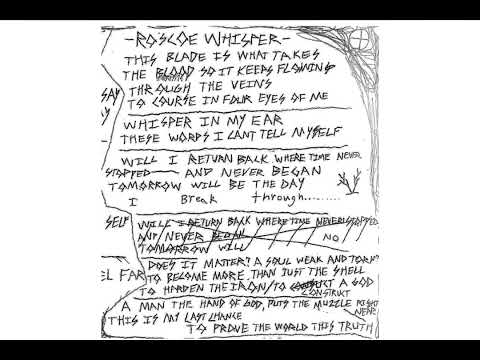 -ROSCOE WHISPER-
THIS BLADE IS WHAT TAKES
THE BLOOD SO IT KEEPS FLOWING
THROUGH THE VEINS
TO COURSE IN FOUR EYES OF ME
WHISPER IN MY EAR
THESE WORDS I CANT TELL MYSELF
WILL I RETURN BACK WHERE TIME NEVER
STOPPED AND NEVER BEGAN
TOMORROW WILL BE THE DAY
I Break through.........
WILL I RETURN BACK WHERE TIME NEVER STOPPED
AND NEVER BEGAN NO
TOMORROW WILL
DOES IT MATTER? A SOUL WEAK AND TORN?
TO BECOME MORE THAN JUST THE SHELL
TO HARDEN THE IRON/TO A GOD
CONSTRUCT
A MAN THE HAND OF GOD, PUTS THE MUZZLE RIGHT
NEAR
THIS IS MY LAST CHANCE
TO PROVE THE WORLD THIS TRUTH
SAY
Y
SELF
EL FAR